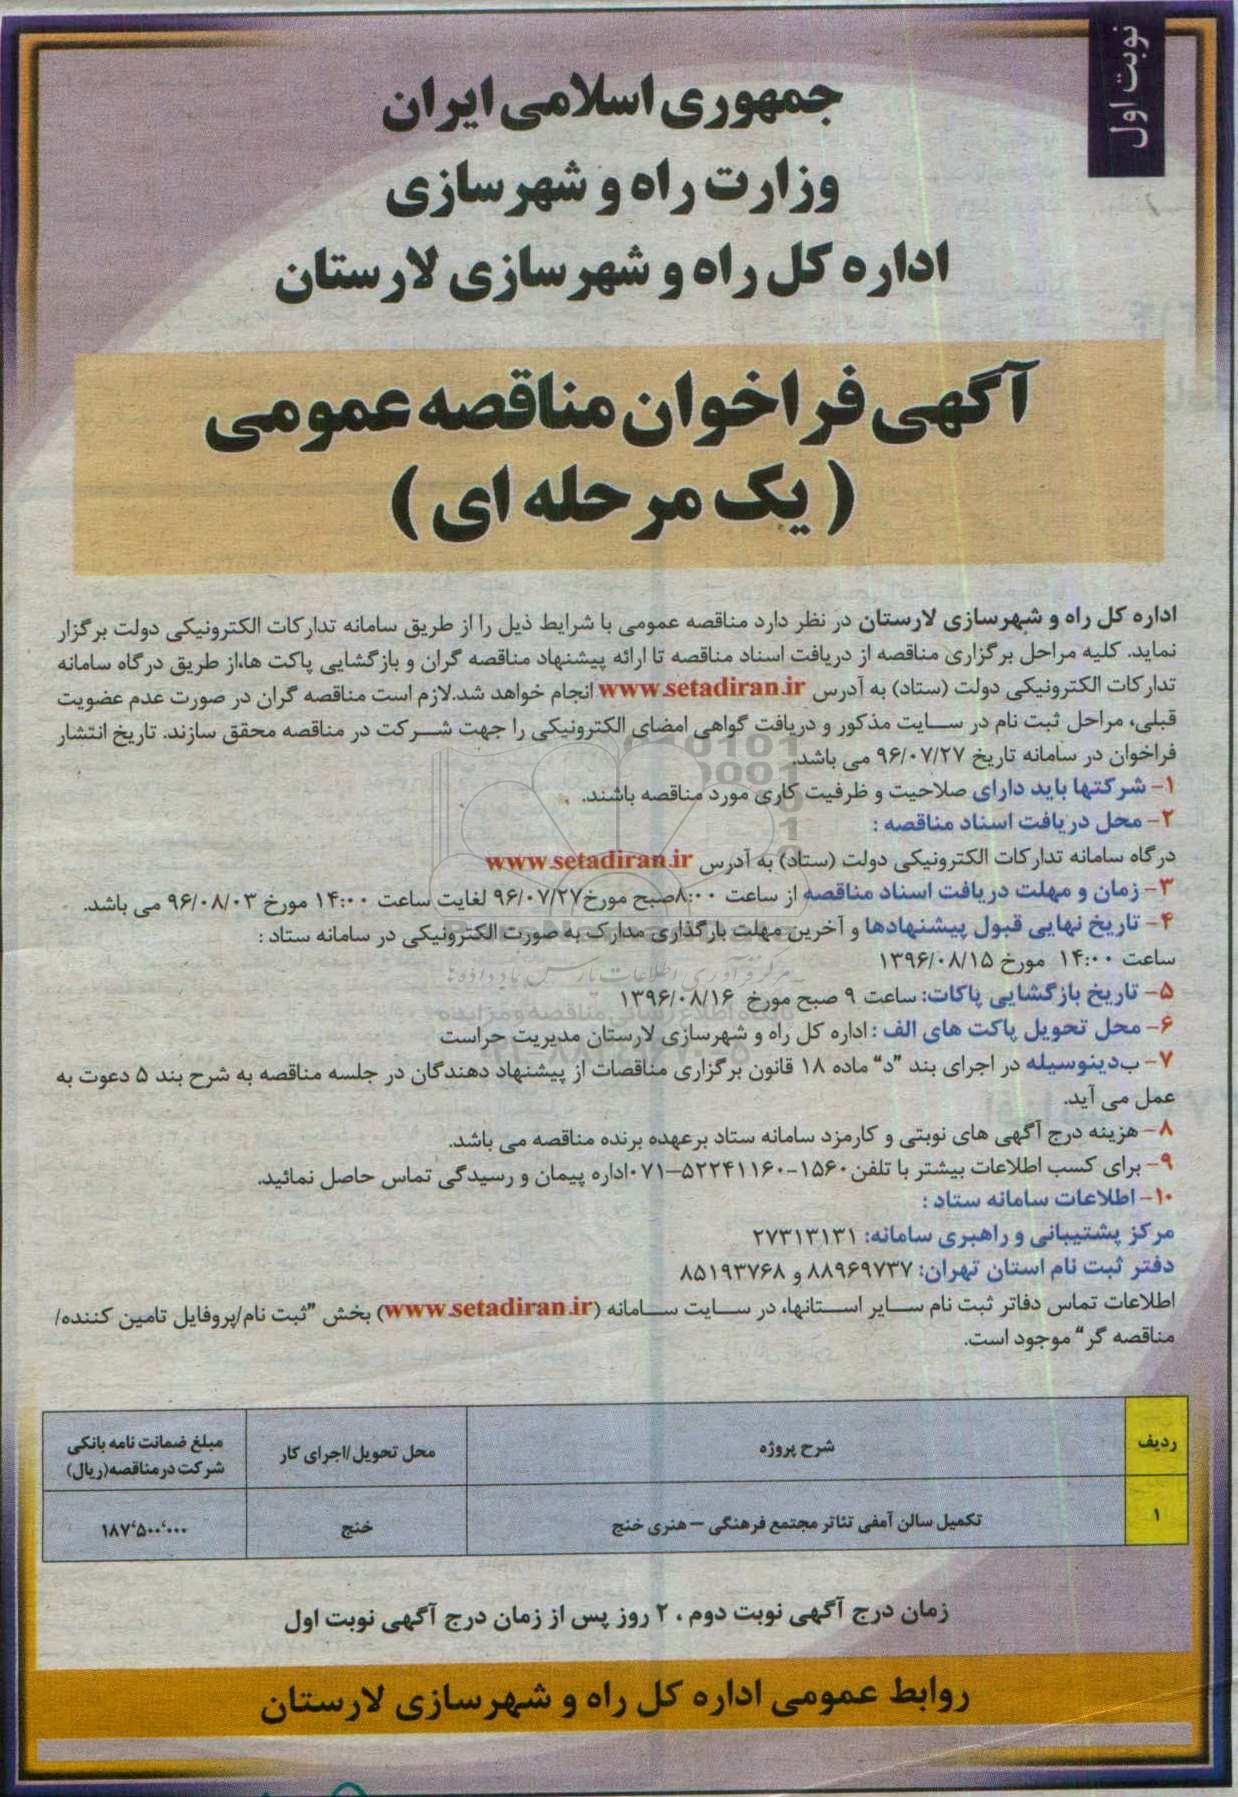 نوبت اول
جمهوری اسلامی ایران
وزارت راه و شهرسازی
اداره کل راه و شهرسازی لارستان
آگهی فراخوان مناقصه عمومی
( یک مرحله ای )
اداره کل راه و شهرسازی لارستان در نظر دارد مناقصه عمومی با شرایط ذیل را از طریق سامانه تدارکات الکترونیکی دولت برگزار
نماید. کلیه مراحل برگزاری مناقصه از دریافت اسناد مناقصه تا ارائه پیشنهاد مناقصه گران و بازگشایی پاکت ها،از طریق درگاه سامانه
تدارکات الکترونیکی دولت (ستاد) به آدرس www.setadiran.ir انجام خواهد شد.لازم است مناقصه گران در صورت عدم عضویت
قبلی، مراحل ثبت نام در سایت مذکور و دریافت گواهی امضای الکترونیکی را جهت شرکت در مناقصه محقق سازند. تاریخ انتشار
فراخوان در سامانه تاریخ ۹۶/۰۷/۲۷ می باشد.
۱- شرکتها باید دارای صلاحیت و ظرفیت کاری مورد مناقصه باشند.
۲- محل دریافت اسناد مناقصه :
درگاه سامانه تدارکات الکترونیکی دولت (ستاد) به آدرس www.setadiran.ir
۳- زمان و مهلت دریافت اسناد مناقصه از ساعت ۸:۰۰صبح مورخ۹۶/۰۷/۲۷ لغایت ساعت ۱۴:۰۰ مورخ ۹۶/۰۸/۰۳ می باشد.
۴- تاریخ نهایی قبول پیشنهادها و آخرین مهلت بارگذاری مدارک به صورت الکترونیکی در سامانه ستاد :
ساعت ۱۴:۰۰ مورخ ۱۳۹۶/۰۸/۱۵
۵- تاریخ بازگشایی پاکات: ساعت ۹ صبح مورخ ۱۳۹۶/۰۸/۱۶
۶- محل تحویل پاکت های الف : اداره کل راه و شهرسازی لارستان مدیریت حراست
۷- بدینوسیله در اجرای بند "د" ماده ۱۸ قانون برگزاری مناقصات از پیشنهاد دهندگان در جلسه مناقصه به شرح بند ۵ دعوت به
عمل می آید.
۸- هزینه درج آگهی های نوبتی و کارمزد سامانه ستاد برعهده برنده مناقصه می باشد.
۹- برای کسب اطلاعات بیشتر با تلفن۱۵۶۰-۵۲۲۴۱۱۶۰-۰۷۱اداره پیمان و رسیدگی تماس حاصل نمائید.
۱۰- اطلاعات سامانه ستاد :
مرکز پشتیبانی و راهبری سامانه: ۲۷۳۱۳۱۳۱
دفتر ثبت نام استان تهران: ۸۸۹۶۹۷۳۷ و ۸۵۱۹۳۷۶۸
اطلاعات تماس دفاتر ثبت نام سایر استانها، در سایت سامانه (www.setadiran.ir) بخش "ثبت نام/پروفایل تامین کننده/
مناقصه گر" موجود است.
ردیف شرح پروژه محل تحویل/اجرای کار مبلغ ضمانت نامه بانکی شرکت درمناقصه(ریال)
۱ تکمیل سالن آمفی تئاتر مجتمع فرهنگی – هنری خنج خنج ۱۸۷٬۵۰۰٬۰۰۰
زمان درج آگهی نوبت دوم ، ۲ روز پس از زمان درج آگهی نوبت اول
روابط عمومی اداره کل راه و شهرسازی لارستان